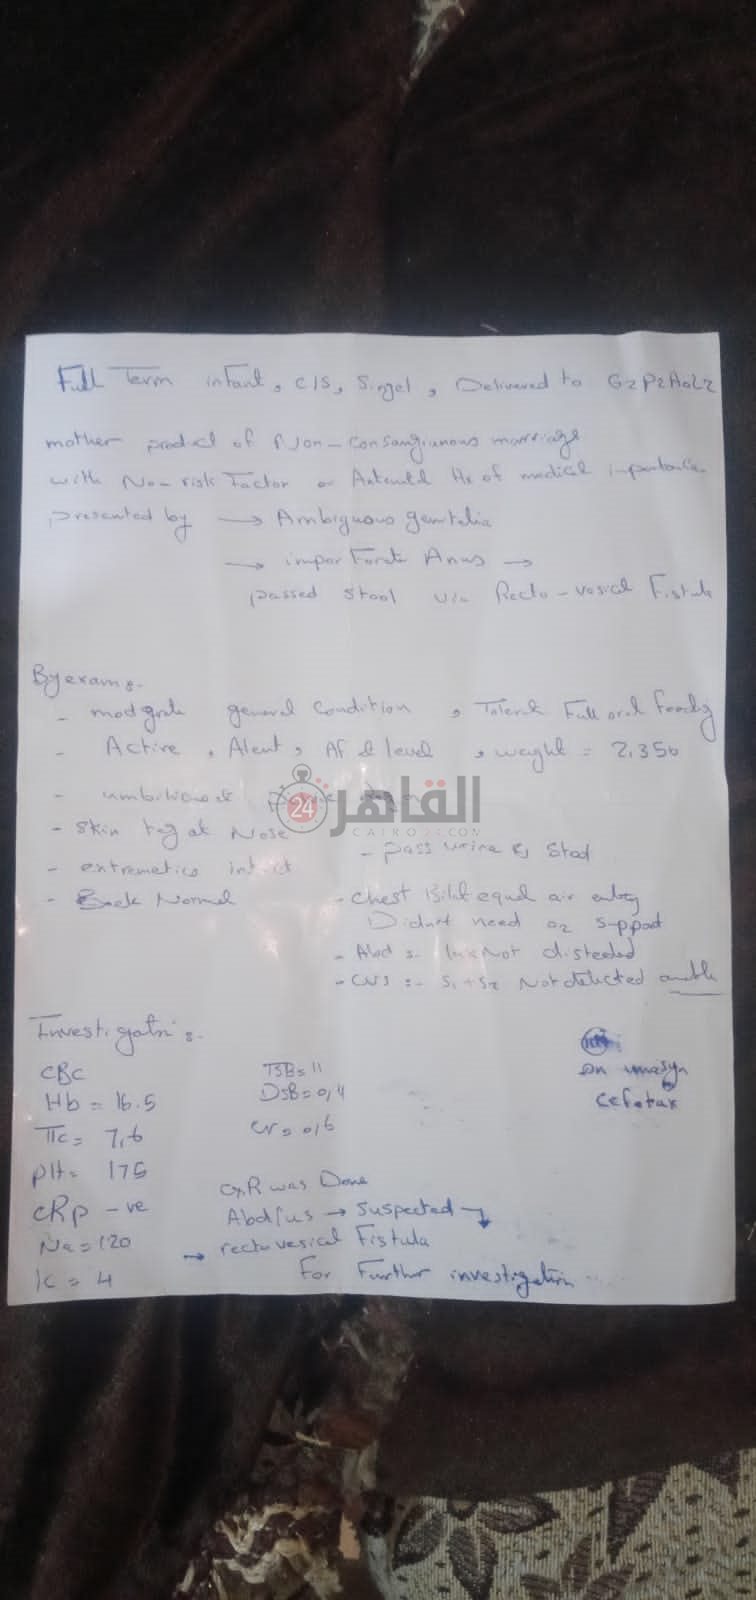 Full Term infant, C/S, Singel, Delivered to G2P2A0L2
mother product of Non-consanguinous marriage
with No-risk Factor or Antenatal Hx of medical importance
presented by → Ambiguous genitalia
→ imperforate Anus →
passed stool via Recto-vesical Fistula
By exam:-
- modgrate general condition, Tolerate Full oral feeding
- Active, Alert, AF at level, weight = 2,350
القاهرة 24
CAIRO24.COM
- skin tag at Nose
- pass urine & Stool
- extremetics intact
- Back Normal
- chest Bilat equal air entry
Didn't need O2 support
- Abd :- lax Not distended
- CVS :- S1+S2 Not detected
Investigatn:-
CBC
Hb = 16.5
TLC = 7,6
plt = 175
CRP -ve
Na = 120
K = 4
TSB = 11
DSB = 0,4
cr = 0,6
on unasyn
Cefotax
CXR was Done
Abd/us → suspected
→ rectovesical Fistula
For Further investigation